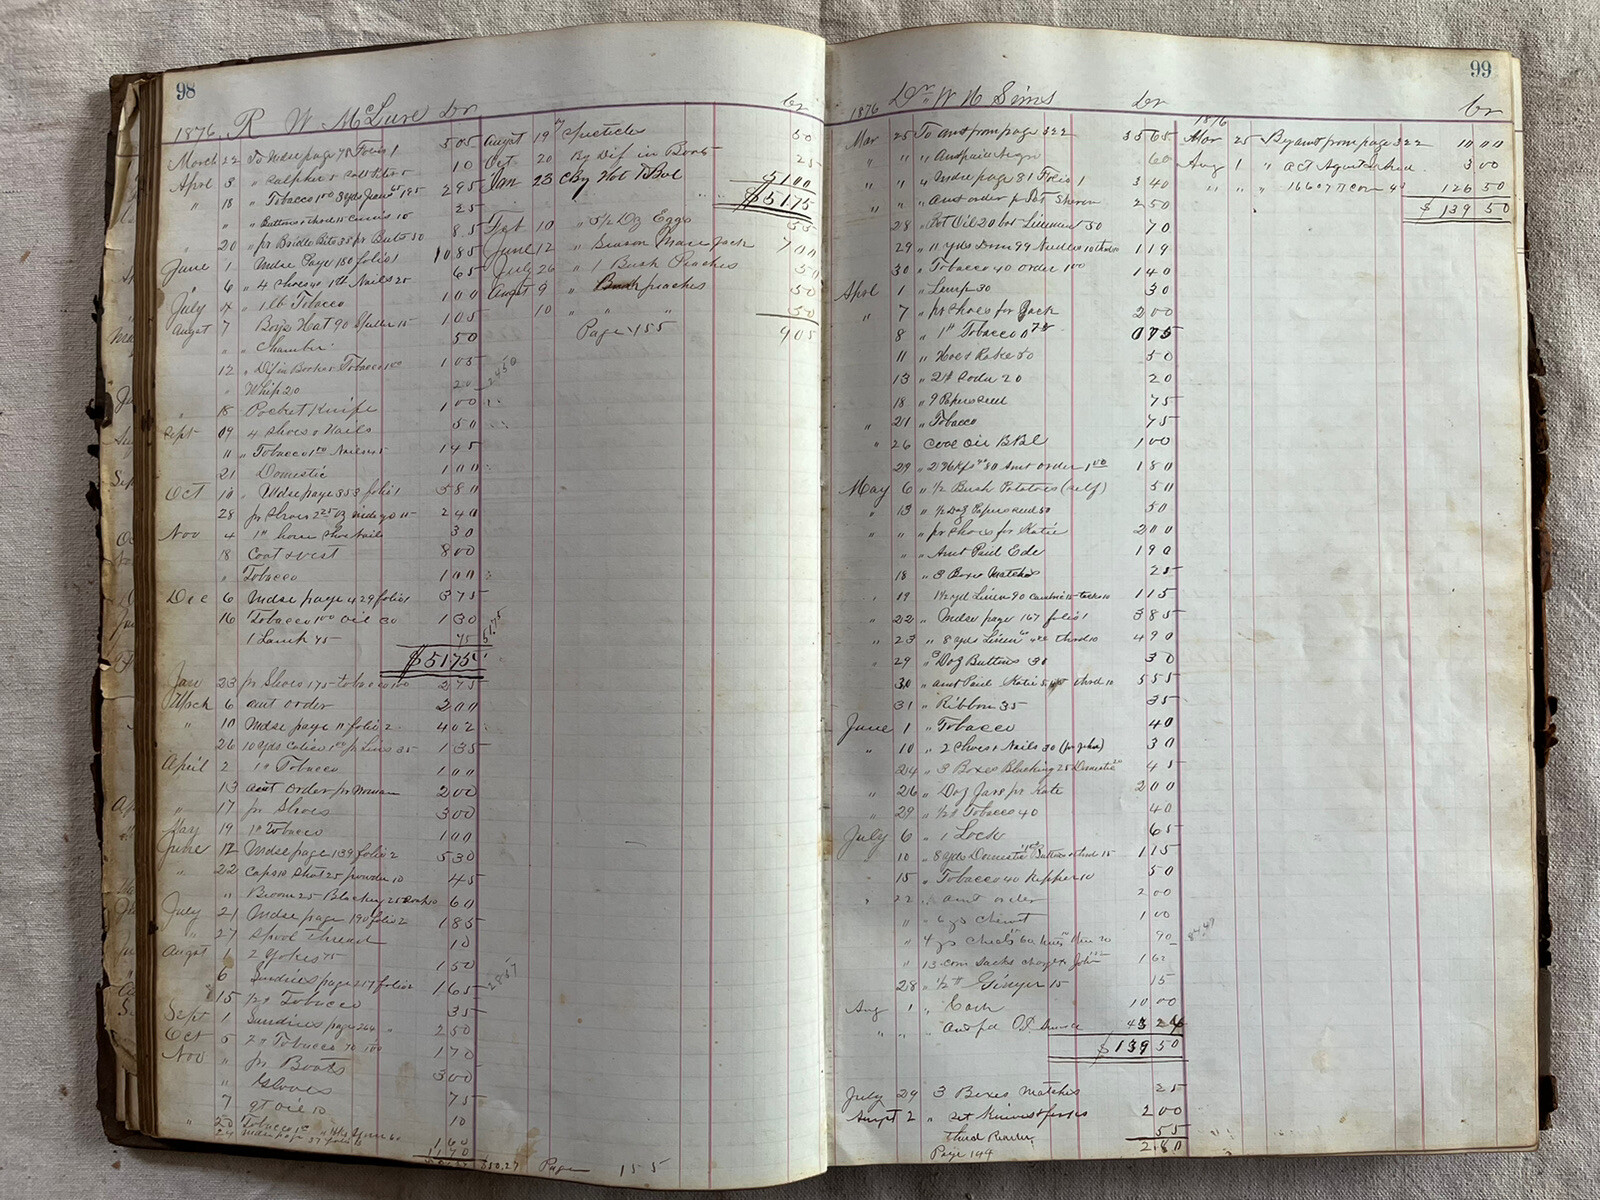 98
R W McLure Dr
Cr
1876
March 22 To Mdse page 78 Folio 1 5 05
April 3 " Sulpher & Salt Peter 10
" 18 " Tobacco 1 00 2 95
" Buttons & thred 15 10 25
" 20 " pr Bridle Bits 35 pr 50 85
June 1 " Mdse Page 180 folio 1 10 85
" 6 " 4 Shoes 40 1 lb Nails 25 65
July 4 " 1 lb Tobacco 1 00
August 7 Boys Hat 90 15 1 05
" " Chamber 50
12 " Dif in Tobacco 1 05
" Whip 20 20
" 18 Pocket Knife 1 00
Sept 09 4 Shoes & Nails 50
11 " Tobacco 1 00 1 45
21 Domestic 1 00
Oct 10 " Mdse page 353 folio 1 5 80
28 pr Shoes 2 25 indigo 15 2 40
Nov 4 1 lb horse Shoe Nails 30
18 Coat & vest 8 00
" Tobacco 1 00
Dec 6 Mdse page 429 folio 1 3 75
16 Tobacco 1 00 oil 30 1 30
1 Lamp 75 75
$ 51 75
Jan 23 pr Shoes 1 75 tobacco 1 00 2 75
March 6 amt order 2 00
" 10 Mdse page 11 folio 2 4 02
26 10 yds Calico 1 00 pr 35 1 35
April 2 1 lb Tobacco 1 00
13 amt order pr 2 00
" 17 pr Shoes 3 00
May 19 1 lb Tobacco 1 00
June 12 Mdse page 139 folio 2 5 30
" 22 Caps 10 Shot 25 powder 10 45
" Broom 25 Blacking 25 60
July 21 Mdse page 190 folio 2 1 85
" 27 Spool Thread 10
August 1 2 Yokes 75 1 50
6 Sundries page 217 folio 2 1 65
15 1/2 lb Tobacco 35
Sept 1 Sundries page 264 " 2 50
Oct 5 Tobacco 70 1 00 1 70
Nov " pr Boots 3 00
" Gloves 75
7 qt oil 10 10
" 20 Tobacco 60 1 60
11 70
50.27 Page 155
August 19 " Specticles 50
Oct 20 By Dif in Boots 25
Jan 23 By Not & Bal 51 00
$ 51 75
10 " 5 1/2 Dz Eggs 55
June 12 " Season Mare Jack 7 00
July 26 " 1 Bush Peaches 50
August 9 " Bush peaches 50
10 " " " 50
Page 155 9 05
99
1876 Dr W N Sims Dr
1876 Cr
Mar 25 To amt from page 322 35 65
" " " Amt paid 60
" " " Mdse page 81 Folio 1 3 40
" " " Amt order 2 50
28 " Oil 20 50 70
29 " 11 yds 99 Needles 10 1 19
30 " Tobacco 40 order 1 00 1 40
April 1 " Lamp 30 30
" 7 " pr Shoes for Jack 2 00
8 " 1 lb Tobacco 75 0 75
11 " Hoe & Rake 50 50
13 " 2 lb Soda 20 20
18 " 9 Papers seed 75
" 21 " Tobacco 75
" 26 Coal Oil BBL 1 00
29 " 80 Amt order 1 00 1 80
May 6 " 1/2 Bush Potatoes (self) 50
" 13 " 1/2 Doz Papers seed 50 50
" " " pr Shoes for Katie 2 00
" " " Amt Paid Ede 1 90
18 " 3 Boxes Matches 25
" 19 " 1 1/2 yd Linen 90 1 15
" 22 " Mdse page 167 folio 1 3 85
" 23 " 8 yds Linen thred 10 4 90
" 29 " 3 Doz Buttons 30 30
30 " amt Paid Katie thred 10 5 55
31 " Ribbon 35 35
June 1 " Tobacco 40
" 10 " 2 Shoes & Nails 30 (pr John) 30
24 " 3 Boxes Blacking 25 Domestic 45
" 26 " Doz Jars pr Kate 2 00
" 29 " 1/2 lb Tobacco 40 40
July 6 " 1 Lock 65
" 10 " 8 yds Domestic Buttons & thred 15 1 15
15 " Tobacco 40 Pepper 10 50
" 22 " amt order 2 00
" " 6 1 00
" " 4 20 90
" 13 corn Sacks John 1 62
28 " 1/2 lb Ginger 15 15
Aug 1 " Cash 10 00
" " " Amt pd 43 24
$ 139 50
July 29 3 Boxes Matches 25
August 2 " set Knives & forks 2 00
Third Reader 55
Page 144 2 80
Mar 25 By amt from page 322 10 00
Aug 1 " act 3 00
" " " 126 50
$ 139 50